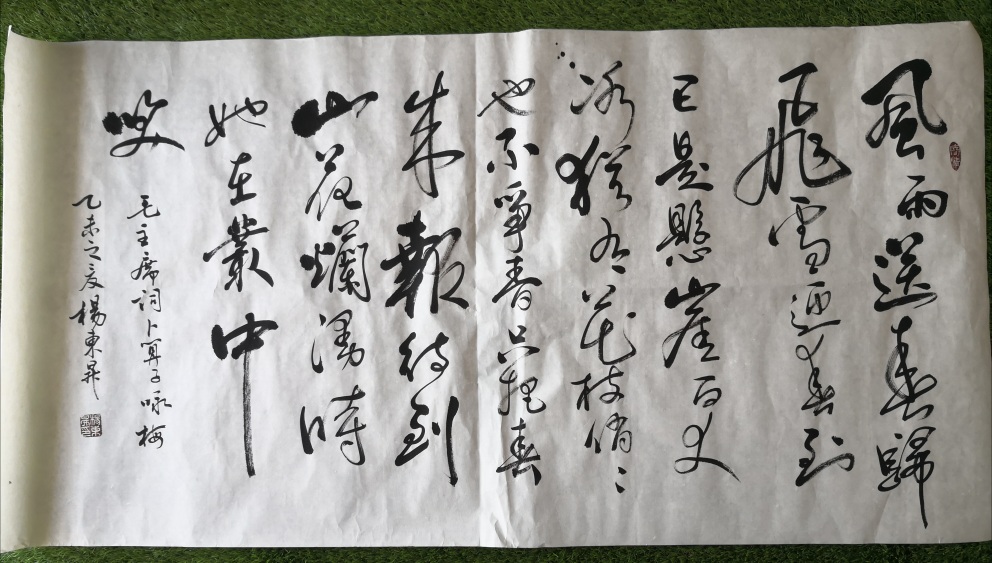 風雨送春歸
飛雪迎春到
已是懸崖百丈
冰猶有花枝俏〻
也不爭春只把春
来報待到
山花爛漫時
她在叢中
笑
毛主席詞卜算子咏梅
乙未之夏楊東昇